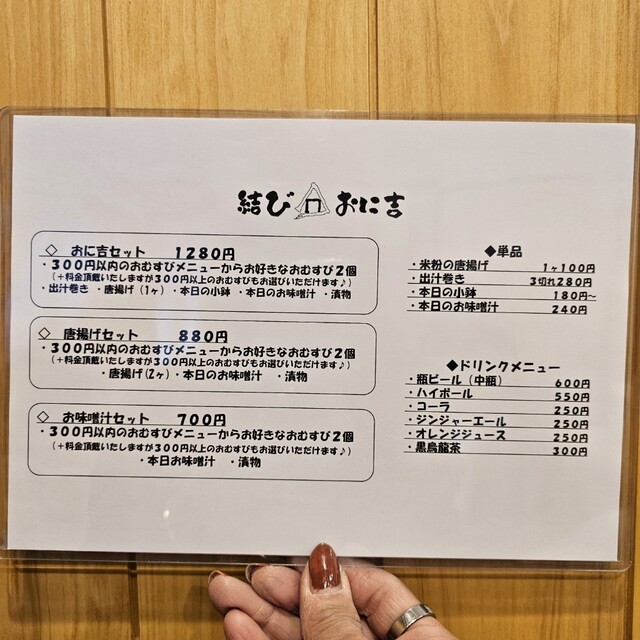 結び おに吉
◇ おに吉セット 1280円
・300円以内のおむすびメニューからお好きなおむすび2個
(+料金頂戴いたしますが300円以上のおむすびもお選びいただけます♪)
・出汁巻き ・唐揚げ(1ヶ) ・本日の小鉢 ・本日のお味噌汁 ・漬物
◇ 唐揚げセット 880円
・300円以内のおむすびメニューからお好きなおむすび2個
(+料金頂戴いたしますが300円以上のおむすびもお選びいただけます♪)
・唐揚げ(2ヶ) ・本日のお味噌汁 ・漬物
◇ お味噌汁セット 700円
・300円以内のおむすびメニューからお好きなおむすび2個
(+料金頂戴いたしますが300円以上のおむすびもお選びいただけます♪)
・本日お味噌汁 ・漬物
◆単品
・米粉の唐揚げ 1ヶ100円
・出汁巻き 3切れ280円
・本日の小鉢 180円~
・本日のお味噌汁 240円
◆ドリンクメニュー
・瓶ビール(中瓶) 600円
・ハイボール 550円
・コーラ 250円
・ジンジャーエール 250円
・オレンジジュース 250円
・黒烏龍茶 300円